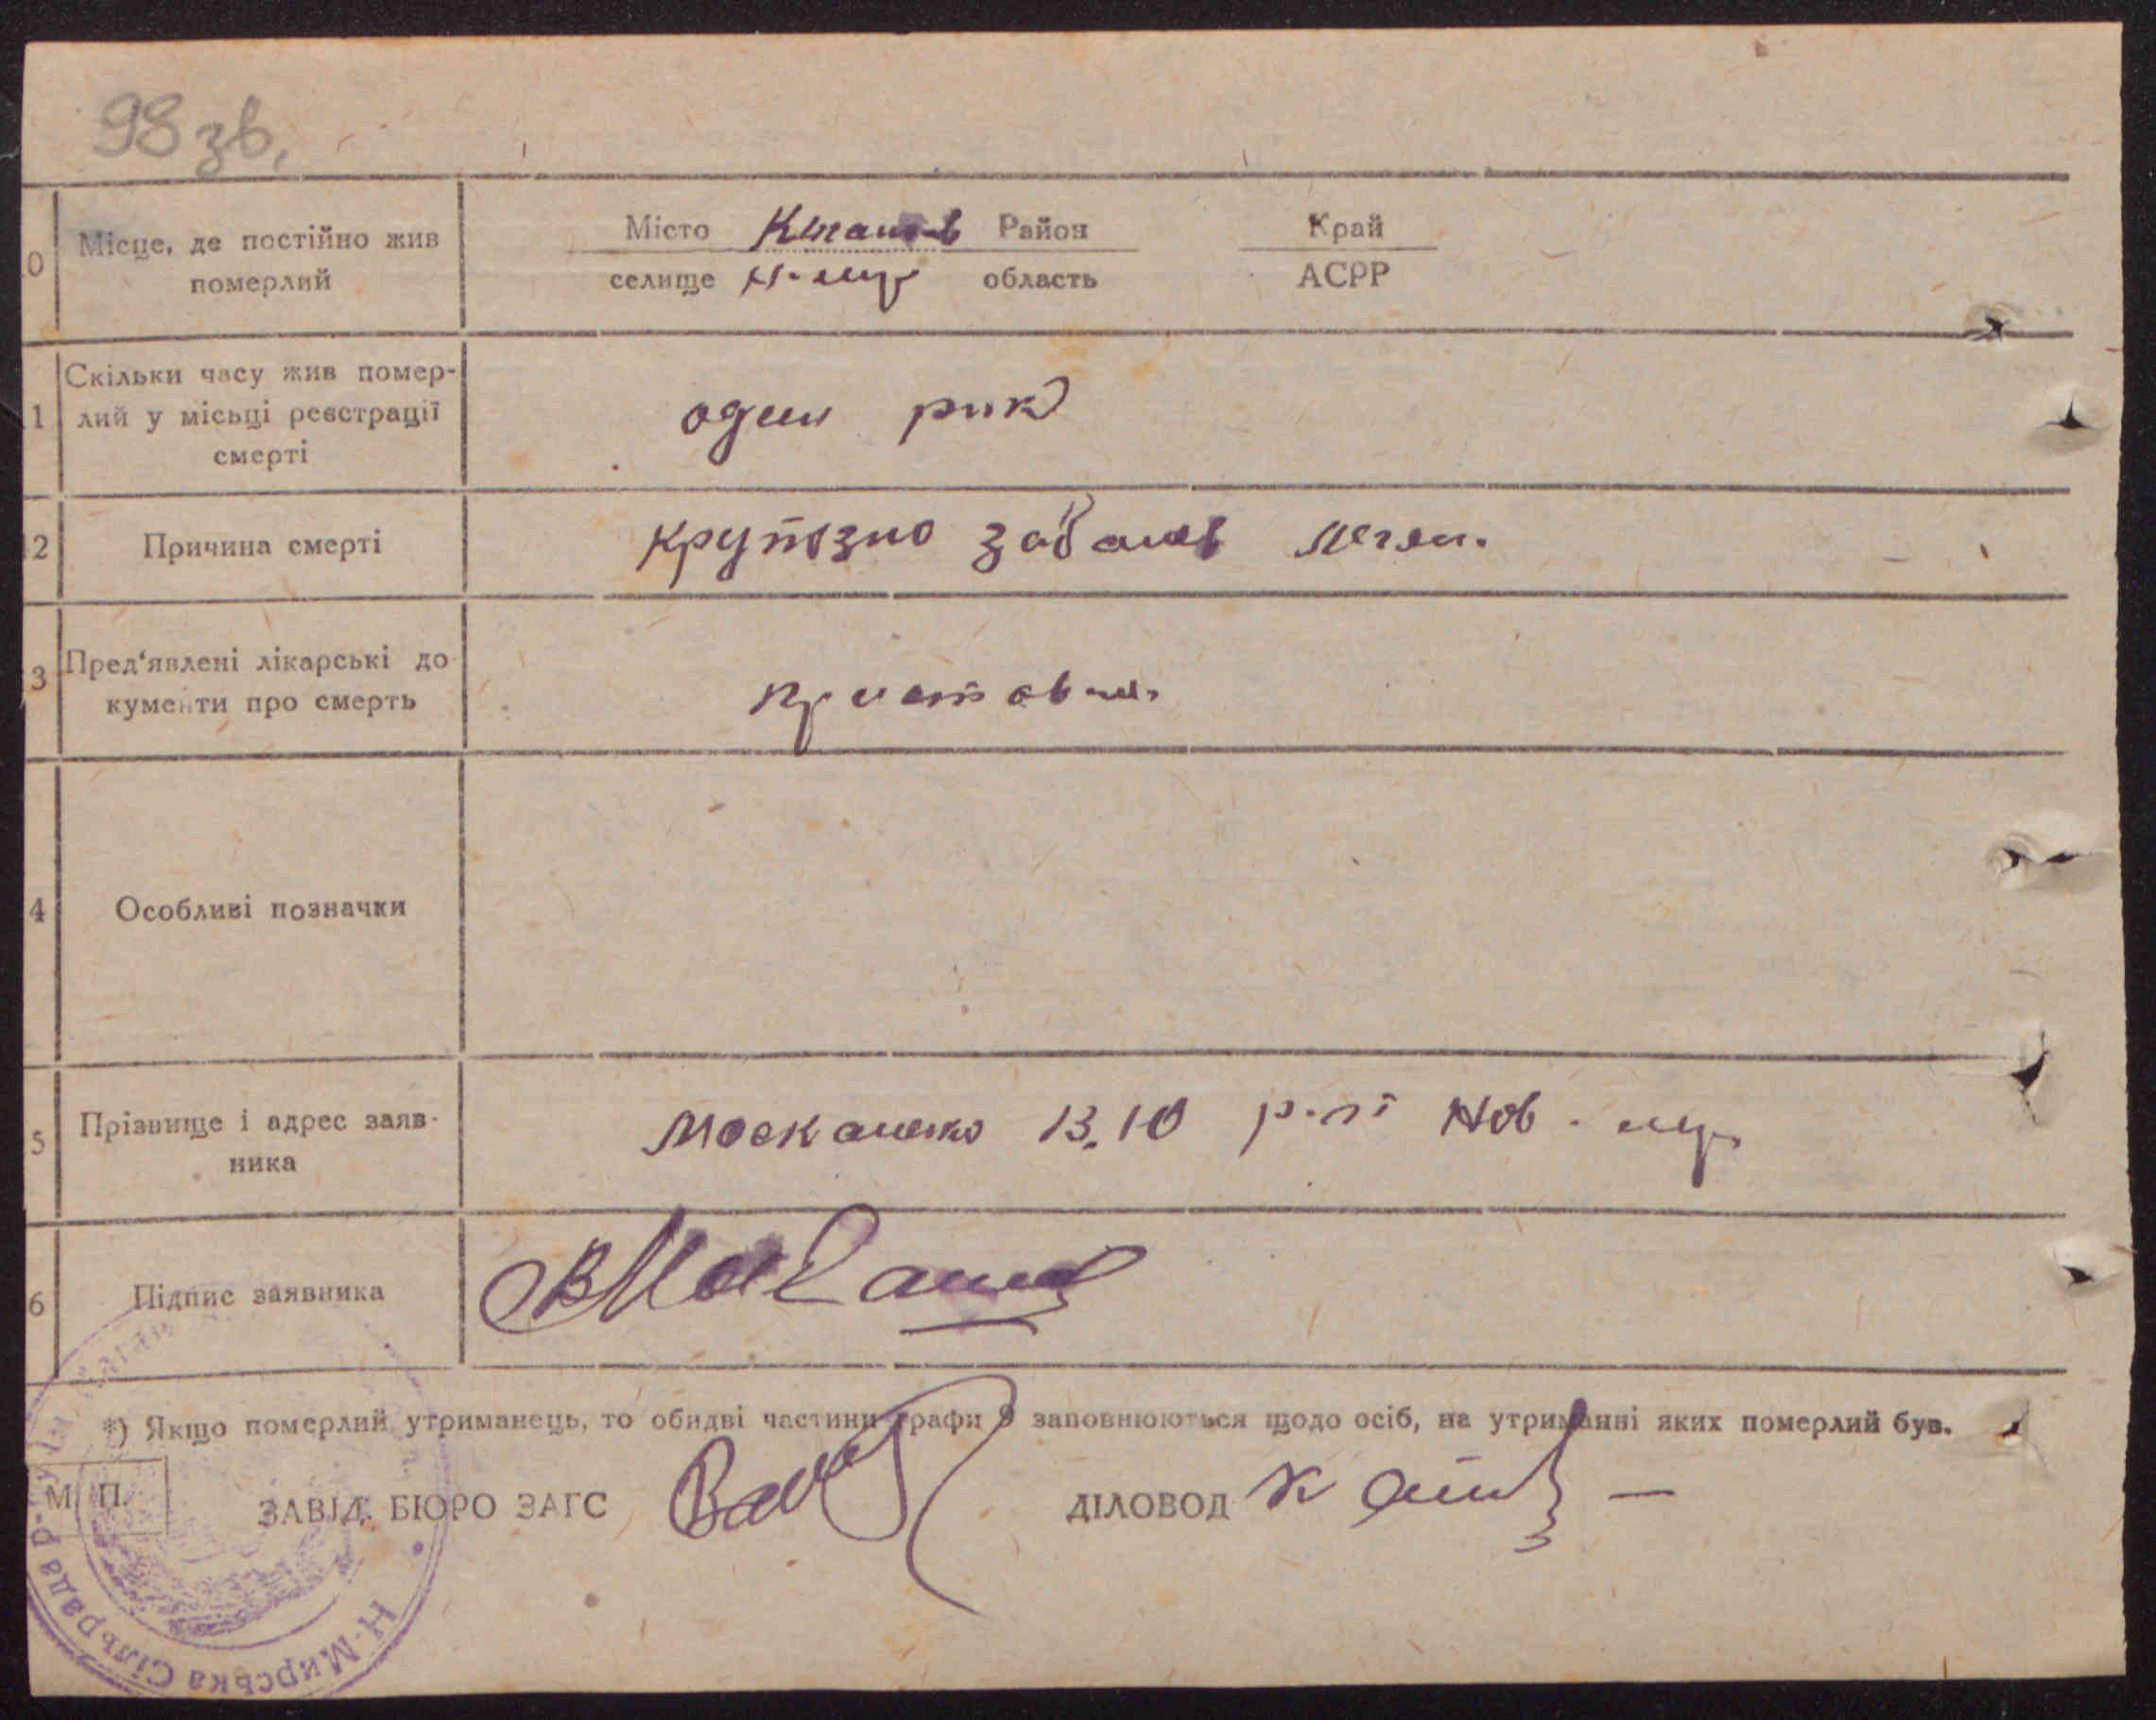 98 зв.
0 Місце, де постійно жив померлий
Місто Район Край
селище Н-мир область АСРР
1 Скільки часу жив помер-
лий у місьці реєстрації
смерті
один рик
2 Причина смерті
крупозно легень.
3 Пред'явлені лікарські до
кументи про смерть
4 Особливі позначки
5 Прізвище і адрес заяв-
ника
Москаленко В.Ю р-ті Нов. мир
6 Підпис заявника
*) Якщо померлий утриманець, то обидві частини графи 9 заповнюються щодо осіб, на утриманні яких померлий був.
М. П.
ЗАВІД. БЮРО ЗАГС ДІЛОВОД
Н-Мирська Сільрада